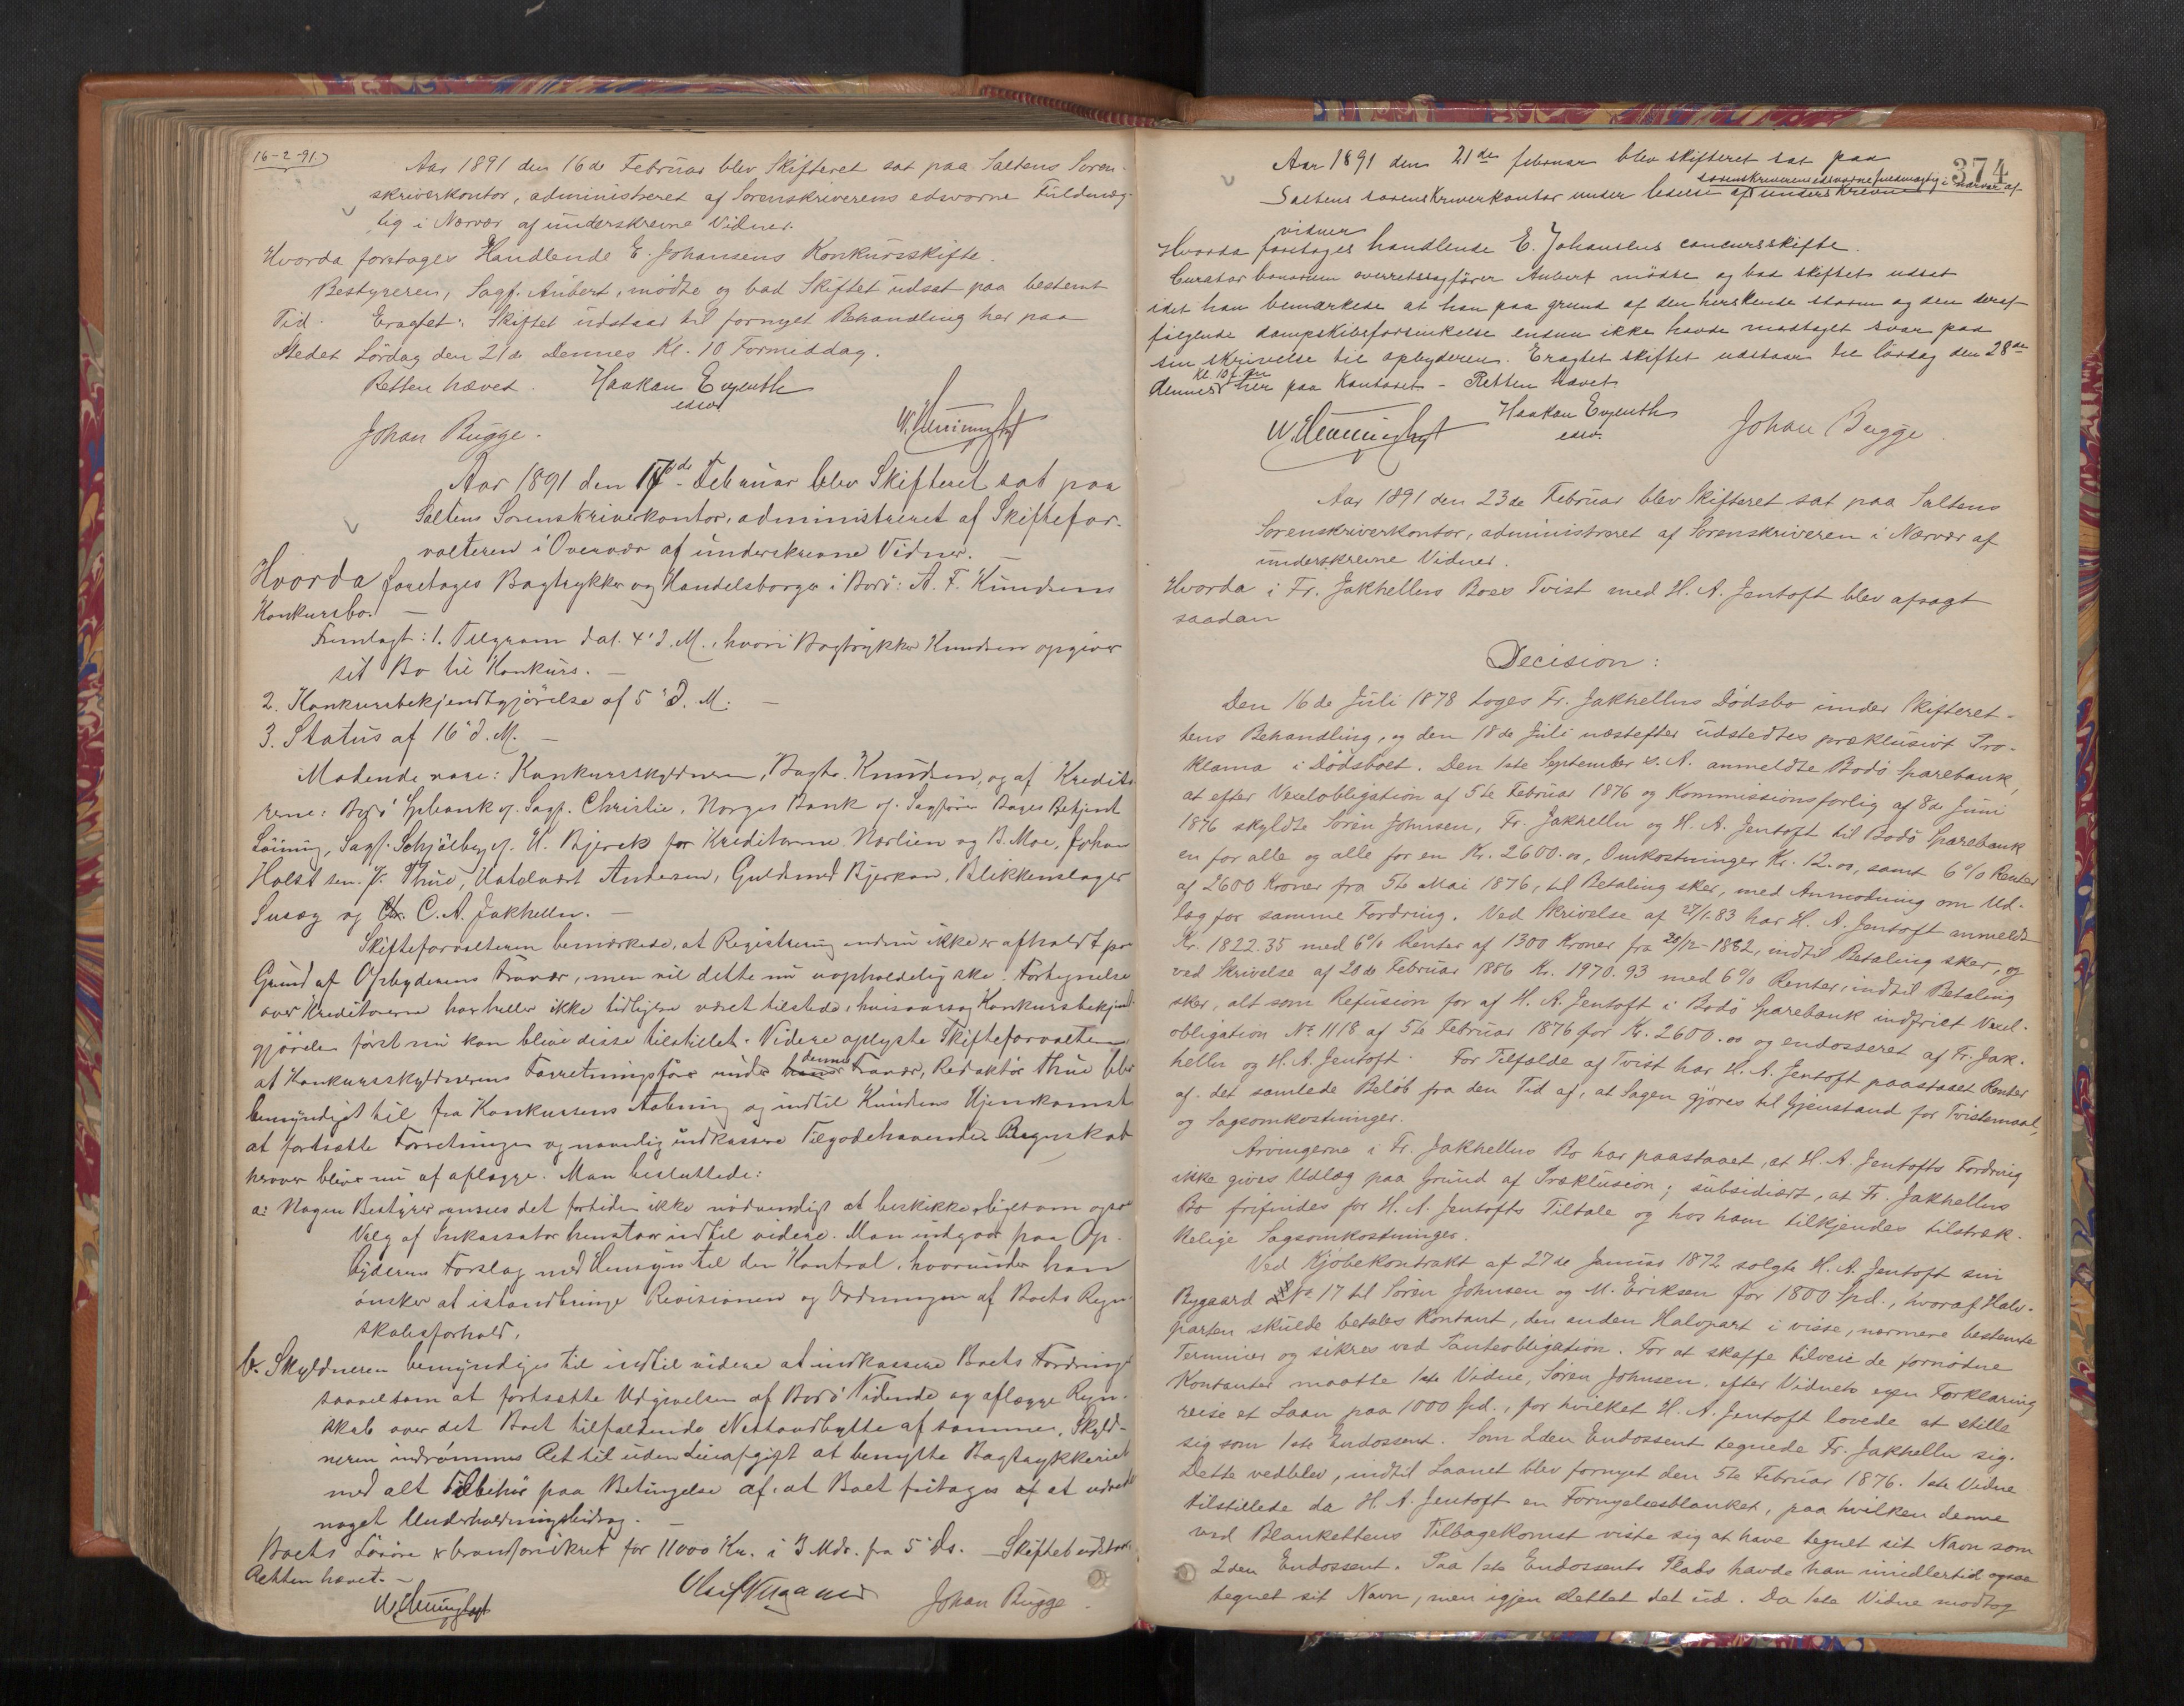 16-2-91
Aar 1891 den 16de Februar blev Skifteret sat paa Saltens Soren-
skriverkontor, administreret af Sorenskriverens edsvorne Fuldmæg-
tig i Nærvær af underskrevne Vidner.
Hvorda foretages Handlende E. Johansens Konkursskifte.
Bestyreren, Sagf. Aubert, mødte og bad Skiftet udsat paa bestemt
Tid. Eragtet: Skiftet udstaar til fornyet Behandling her paa
Stedet Lördag den 21de Dennes Kl. 10 Formiddag.
Retten hævet. Haakon Evjenth
edsv
Johan Bugge.
Aar 1891 den 17de Februar blev Skifteret sat paa
Saltens Sorenskriverkontor, administreret af Skiftefor-
valteren i Overvær af underskrevne Vidner.
Hvorda foretages Bogtrykker og Handelsborger i Bodö: A. F. Knudsens
Konkursbo. —
Fremlagt: 1. Telegram dat. 4' d. M., hvori Bogtrykker Knudsen opgiver
sit Bo til Konkurs. —
2. Konkursbekjendtgjörelse af 5' d. M. —
3. Status af 16' d. M. —
Mødende vare: Konkursskyldneren, Bogtr. Knudsen, og af Kredito
rerne: Bodö Spbank v. Sagf. Christie, Norges Bank v. Sagförer
Sagf. Schjölberg, v. U. Bjerck for Kreditorerne Norlien og B. Moe, Johan
Holst sen. P. Thue, Andersen, Guldsmed Bjerkan, Blikkenslager
og C. A. Jakhelln. —
Skifteforvalteren bemærkede, at Registrering endnu ikke er afholdt paa
Grund af Opbyderens Fravær, men vil dette nu uopholdelig ske. Fortegnelse
over Kreditorerne har heller ikke tidligere været tilstede, hvisaarsag Konkursbekjend
gjörelsen först nu kan blive disse tilstillet. Videre oplyste Skifteforvalteren
at Konkursskyldnerens Forretningsförer under dennes Fravær, Redaktör Thue blev
bemyndiget til fra Konkursens Aabning og indtil Knudsens Hjemkomst
at fortsætte Forretningen og navnlig indkassere Tilgodehavender. Regnskab
herover bliver nu at aflægge. Man besluttede:
a: Nogen Bestyrer ansees det fortiden ikke nödvendigt at beskikke, ligesom ogsaa
Valg af Inkassator henstaar indtil videre. Man indgaar paa Op-
byderens Forslag med Hensyn til den Kontrol, hvorunder han
önsker at istandbringe Revisionen og Ordningen af Boets Regn-
skabsforhold.
b. Skyldneren bemyndiges til indtil videre at indkassere Boets Fordringer
saavelsom at fortsætte Udgivelsen af Bodö Tidende og aflægge Regn-
skab over det Boet tilfaldende Nettoudbytte af samme. Skyld-
neren indrömmes Ret til uden Leieafgift at benytte Bogtrykkeriet
med alt Tilbehör paa Betingelse af, at Boet fritages af at udrede
noget Underholdningsbidrag. —
Boets Lösöre er brandforsikret for 11000 Kr. i 3 Mdr. fra 5' ds. — Skiftet udstaar
Retten hævet. —
Johan Bugge.
374
Aar 1891 den 21de februar blev skifteret sat paa
Saltens sorenskriverkontor under ledelse af sorenskriverens edsvorne fuldmægtig i nærvær af underskrevne
vidner
Hvorda foretages handlende E. Johansens concursskifte.
Curator bonorum overretssagfører Aubert mödte og bad skiftet udsat
idet han bemærkede at han paa grund af den herskende storm og den deraf
følgende dampskibsforsinkelse endnu ikke havde modtaget svar paa
sin skrivelse til opbyderen. Eragtet skiftet udstaar til lördag den 28de
dennes Kl. 10 f.m her paa Kontoret - Retten hævet.
Haakon Evjenth
edsv.
Johan Bugge.
Aar 1891 den 23de Februar blev Skifteret sat paa Saltens
Sorenskriverkontor, administreret af Sorenskriveren i Nærvær af
underskrevne Vidner.
Hvorda i Fr. Jakhellns Boes Tvist med H. A. Jentoft blev afsagt
saadan
Decision:
Den 16de Juli 1878 toges Fr. Jakhellns Dödsbo under Skifteret-
tens Behandling, og den 18de Juli næstefter udstedtes præklusivt Pro-
klama i Dödsboet. Den 1ste September s. A. anmeldte Bodö Sparebank,
at efter Vexelobligation af 5te Februar 1876 og Kommissionsforlig af 8de Juni
1876 skyldte Sören Johnsen, Fr. Jakhelln og H. A. Jentoft til Bodö Sparebank
en for alle og alle for en Kr. 2600.00, Omkostninger Kr. 12.00, samt 6% Renter
af 2600 Kroner fra 5te Mai 1876, til Betaling sker, med Anmodning om Ud-
læg for samme Fordring. Ved Skrivelse af 27/1-83 har H. A. Jentoft anmeldt
Kr. 1822.35 med 6% Renter af 1300 Kroner fra 20/12-1882, indtil Betaling sker, og
ved Skrivelse af 20de Februar 1886 Kr. 1970.93 med 6% Renter, indtil Betaling
sker, alt som Refusion for af H. A. Jentoft i Bodö Sparebank indfriet Vexel-
obligation No 1118 af 5te Februar 1876 for Kr. 2600.00 og endosseret af Fr. Jak-
helln og H. A. Jentoft. For Tilfælde af Tvist har H. A. Jentoft paastaaet Renter
af det samlede Belöb fra den Tid af, at Sagen gjöres til Gjenstand for Tvistemaal,
og Sagsomkostninger.
Arvingerne i Fr. Jakhellns Bo har paastaaet, at H. A. Jentofts Fordring
ikke gives Udlæg paa Grund af Præklusion; subsidiært, at Fr. Jakhellns
Bo frifindes for H. A. Jentofts Tiltale og hos ham tilkjendes tilstræk-
kelige Sagsomkostninger.
Ved Kjöbekontrakt af 27de Januar 1872 solgte H. A. Jentoft sin
Bygaard No 17 til Sören Johnsen og M. Eriksen for 1800 Spd., hvoraf Halv-
parten skulde betales kontant, den anden Halvpart i visse, nærmere bestemte
Terminer og sikres ved Panteobligation. For at skaffe tilveie de fornödne
Kontanter maatte 1ste Vidne, Sören Johnsen, efter Vidnets egen Forklaring
reise et Laan paa 1000 Spd., for hvilket H. A. Jentoft lovede at stille
sig som 1ste Endossent. Som 2den Endossent tegnede Fr. Jakhelln sig.
Dette vedblev, indtil Laanet blev fornyet den 5te Februar 1876. 1ste Vidne
tilstillede da H. A. Jentoft en Fornyelsesblanket, paa hvilken denne
ved Blankettens Tilbagekomst viste sig at have tegnet sit Navn som
2den Endossent. Paa 1ste Endossents Plads havde han imidlertid ogsaa
tegnet sit Navn, men igjen slettet det ud. Da 1ste Vidne modtog